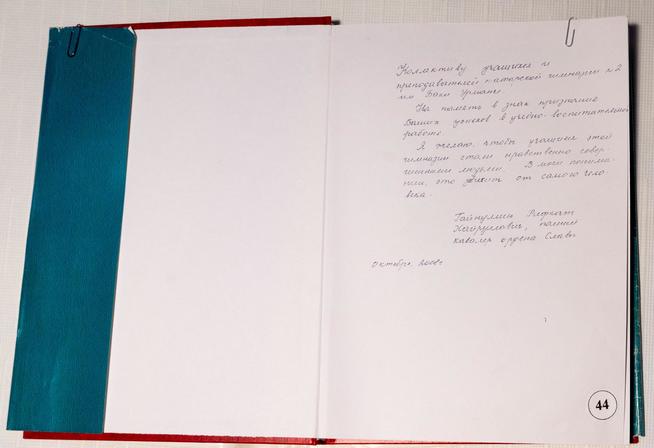 Коллективу учащихся и
преподавателей татарской гимназии №2
им. Баки Урманче.
На память в знак признания
Ваших успехов в учебно-воспитательной
работе.
Я желаю, чтобы учащиеся этой
гимназии стали нравственно совер-
шенными людьми. В моем понима-
нии, это зависит от самого чело-
века.
Гайнуллин Рифкат
Хайруллович, полный
кавалер ордена Славы
Октябрь,
44